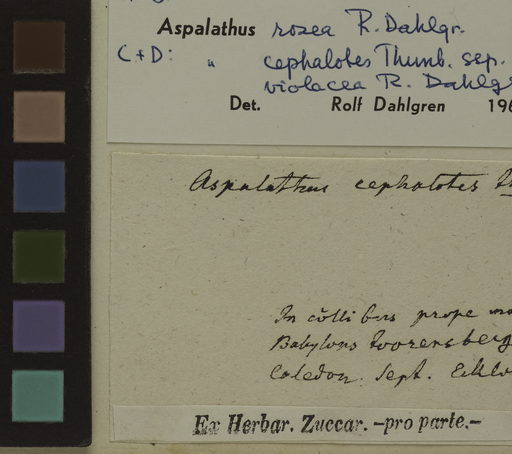 Aspalathus rosea R. Dahlgr.
C + D: " cephalotes Thunb. ssp.
violacea R. Dahlgr
Det. Rolf Dahlgren 196
Aspalathus cephalotes
In collibus prope
Babylons Toorensberg
Caledon. Sept. Eklo
Ex Herbar. Zuccar. -pro parte.-